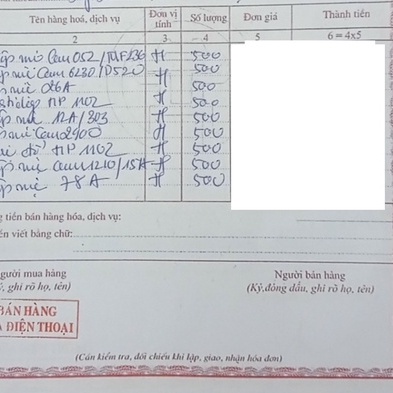 Tên hàng hoá, dịch vụ Đơn vị tính Số lượng Đơn giá Thành tiền
2 3 4 5 6 = 4x5
mỉ Can 052 / MF236 H 500
mỉ Can 6230 / D520 H 500
mỉ 26A H 500
HP 1102 H 500
12A / 303 H 500
mỉ Can 2900 H 500
HP 1102 H 500
mị Canm 1210 / 15A H 500
mị 78A H 500
tiền bán hàng hóa, dịch vụ:
viết bằng chữ:
gười mua hàng Người bán hàng
, ghi rõ họ, tên) (Ký,đóng dấu, ghi rõ họ, tên)
BÁN HÀNG
ĐIỆN THOẠI
(Cần kiểm tra, đối chiếu khi lập, giao, nhận hóa đơn)